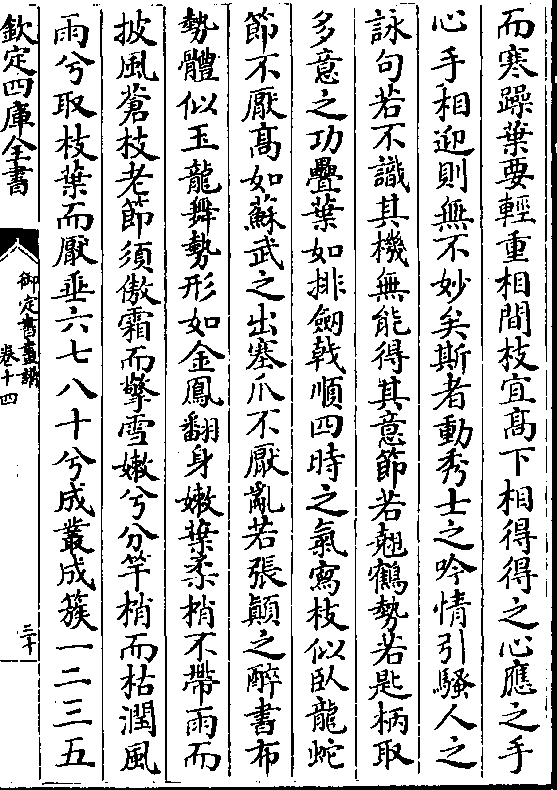 而寒躁葉要輕重相間枝宜髙下相得得之心應之手
心手相迎則無不妙矣斯者動秀士之吟情引騷人之
詠句若不識其機無能得其意節若翹鶴勢若匙柄取
多意之功疊葉如排劒戟順四時之氣寫枝似臥龍蛇
節不厭髙如蘇武之出塞爪不厭亂若張顛之醉書布
勢體似玉龍舞勢形如金鳳翻身嫩葉柔梢不帶雨而
披風蒼枝老節須傲霜而擎雪嫩兮分竿梢而枯潤風
雨兮取枝葉而厭垂六七八十兮成叢成簇一二三五
欽定四庫全書
御定書畫譜
卷十四
三十